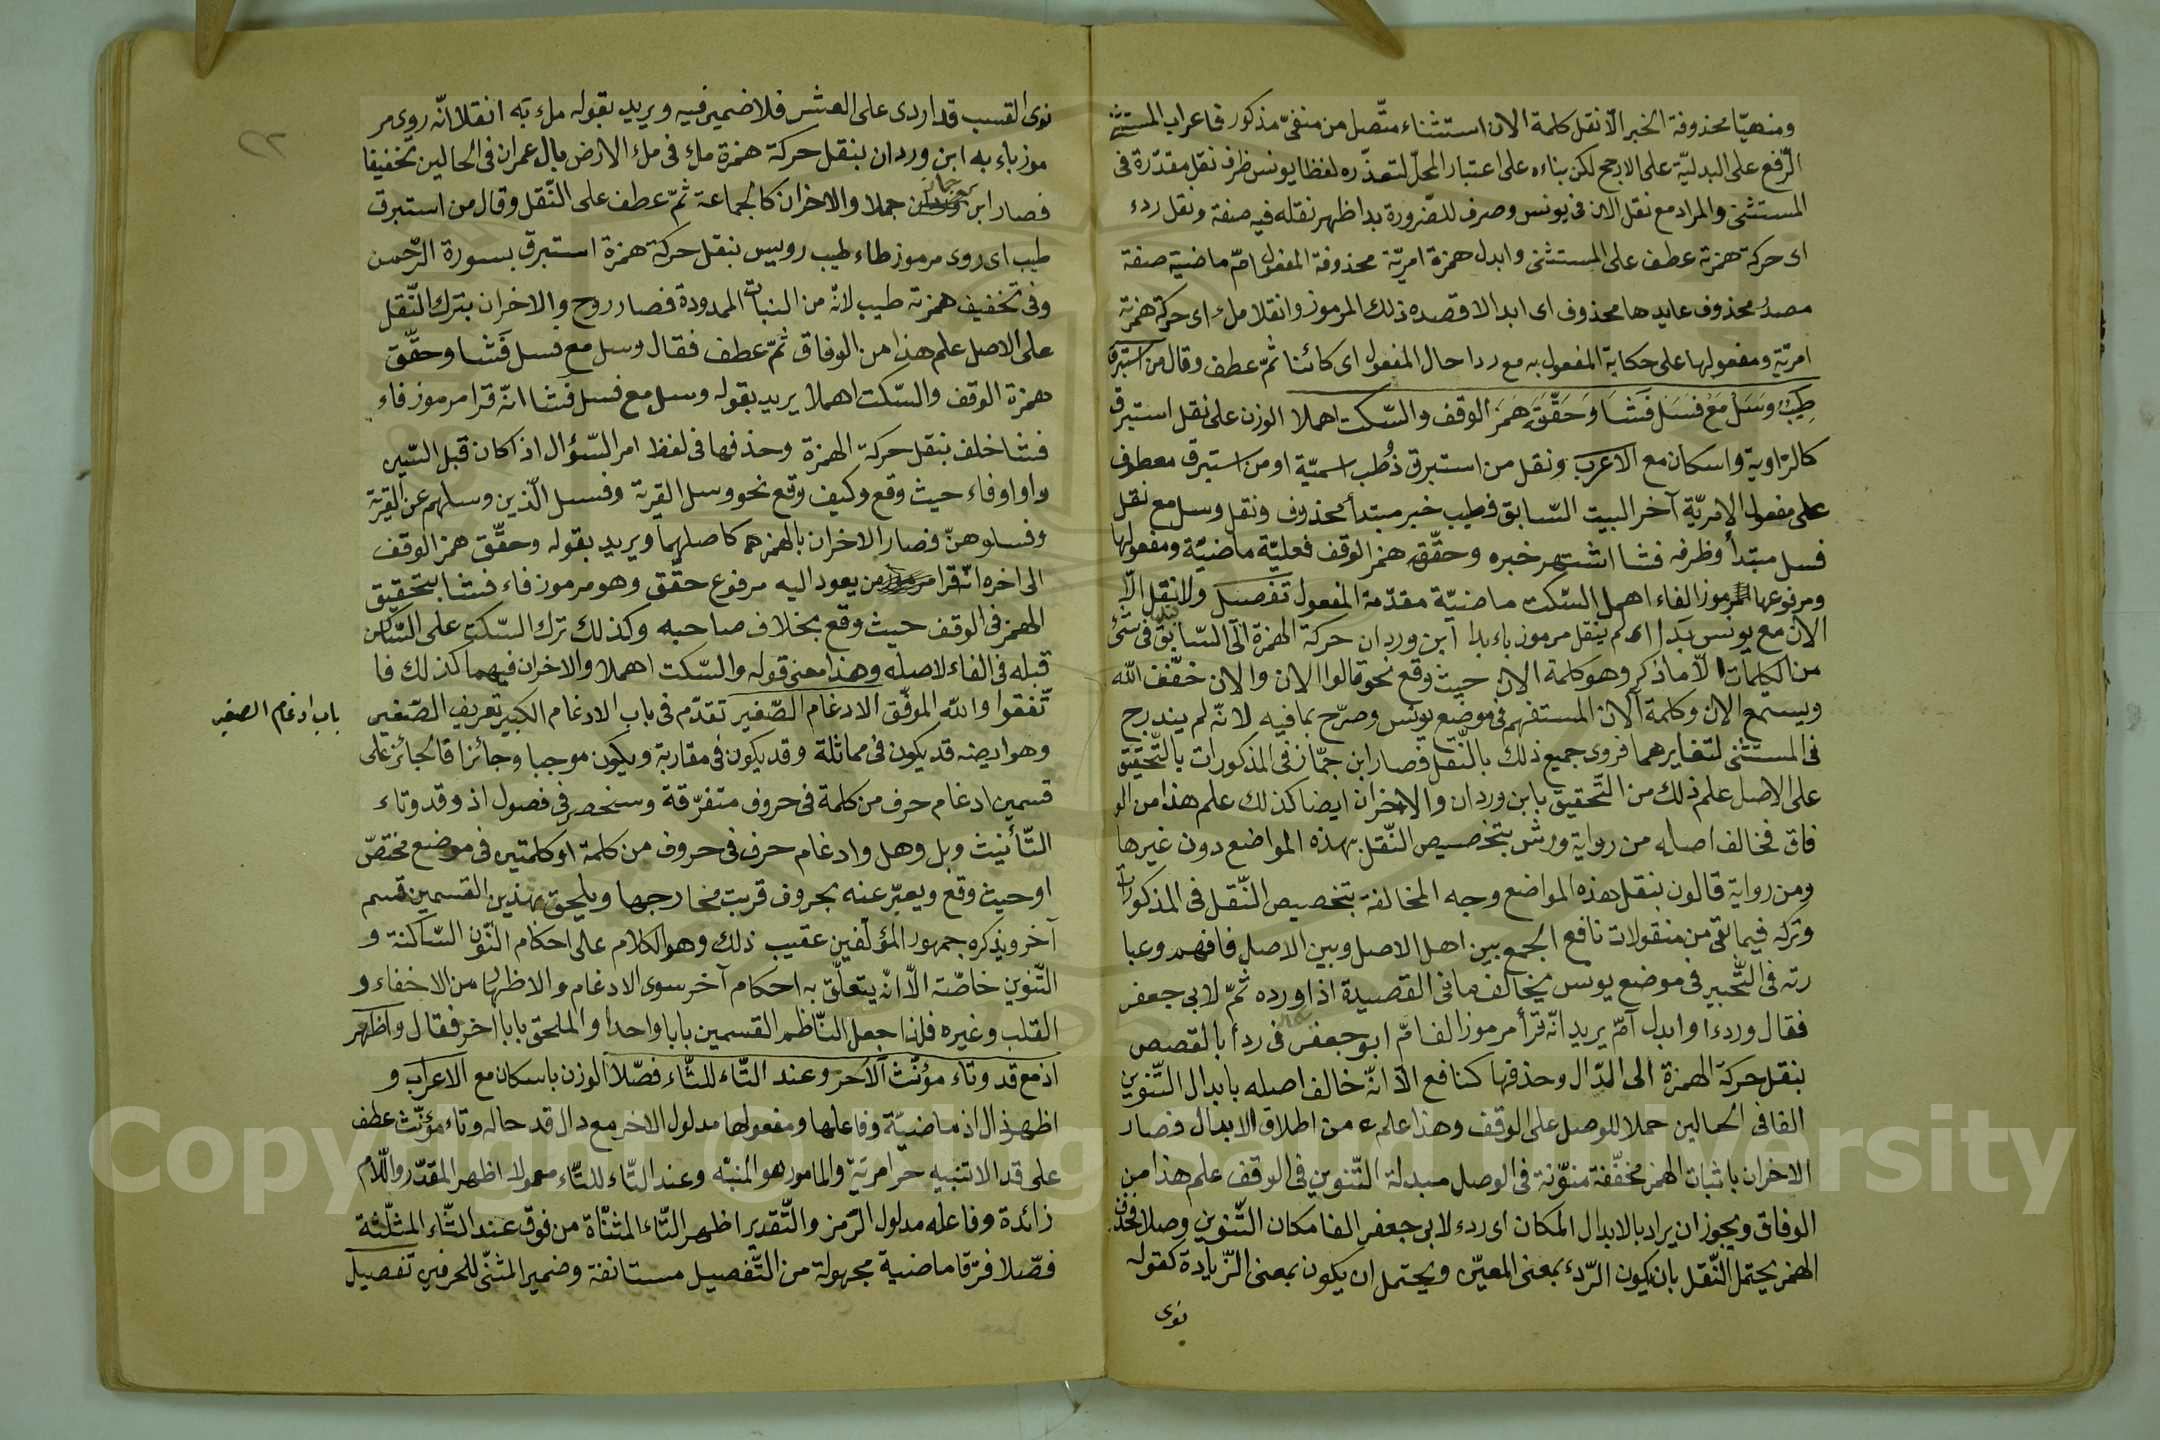 ومنهيّا محذوفة الخبر الّا نقل كلمة الان استثناء متّصل من منفىّ مذكور فاعراب المستثنى
الرّفع على البدليّة على الارجح لكن بناءه على اعتبار المحلّ لتعذّره لفظا يونس ظرف نقل مقدّرة فى
المستثنى والمراد مع نقل الان فى يونس وصرف للضّرورة بدا ظهر نقله فيه صفة ونقل ردء
اى حركة همزته عطف على المستثنى وابدل همزة امريّة محذوفة المفعول امّ ماضية صفة
مصدر محذوف عايدها محذوف اى ابدالا قصده ذلك المرموز وانقلا ملء اى حركة همزته
امريّة ومفعولها على حكاية المفعول به مع ردا حال المفعول اى كائنا ثمّ عطف وقال من استبرق
طيب وسل مع فسل فشا وحقّق همز الوقف والسّكت اهملا الوزن على نقل استبرق
كالرّاوية واسكان مع الاعرب ونقل من استبرق ذُ طب اسميّة او من استبرق معطوف
على مفعول الامريّة آخر البيت السّابق فطيب خبر مبتدأ محذوف ونقل وسل مع نقل
فسل مبتدأ وظرفه فشا اشتهر خبره وحقّق همز الوقف فعليّة ماضيّة ومفعولها
ومرفوعها مرموز الفاء اهمل السّكت ماضيّة مقدّمة المفعول تفصيل ولا نقل الّا
الان مع يونس بدا اى لم ينقل مرموز باء بدا ابن وردان حركة الهمزة الى السّابق فى شئ
من الكلمات الّا ما ذكر وهو كلمة الان حيث وقع نحو قالوا الان والان خفّف الله
ويستمع الان وكلمة آلان المستفهم فى موضع يونس وصرّح بما فيه لانّه لم يندرج
فى المستثنى لتغايرهما فروى جميع ذلك بالنّقل فصار ابن جمّاز فى المذكورات بالتّحقيق
على الاصل علم ذلك من التّحقيق بابن وردان والاخران ايضا كذلك علم هذا من الو
فاق فخالف اصله من رواية ورش بتخصيص النّقل بهذه المواضع دون غيرها
ومن رواية قالون بنقل هذه المواضع وجه المخالفة بتخصيص النّقل فى المذكورات
وتركه فيما بقى من منقولات نافع الجمع بين اهل الاصل وبين الاصل فافهم وعبا
رته فى التّحبير فى موضع يونس يخالف ما فى القصيدة اذا ورده ثمّ لابى جعفر
فقال وردءا وابدل أمّ يريد انّه قرأ مرموز الف امّ ابو جعفر فى ردأ بالقصص
بنقل حركة الهمزة الى الدّال وحذفها كنافع الّا انّه خالف اصله بابدال التّنوين
الفا فى الحالين حملا للوصل على الوقف وهذا علم من اطلاق الابدال فصار
الاخران باثبات الهمز مخفّفة منوّنة فى الوصل مبدلة التّنوين فى الوقف علم هذا من
الوفاق ويجوز ان يراد بالابدال المكان اى ردء لابى جعفر الفا مكان التّنوين وصلا فحذف
الهمز يحتمل النّقل بان يكون الرّدء بمعنى المعين ويحتمل ان يكون بمعنى الزّيادة كقوله
نوى
نوى القسب قد اردى على العشر فلا ضمير فيه ويريد بقوله ملء به انقلا انّه روى مر
موز باء به ابن وردان بنقل حركة همزة ملء فى ملء الارض بال عمران فى الحالين تخفيفا
فصار ابن جماز حملا والاخران كالجماعة ثمّ عطف على النّقل وقال من استبرق
طيب اى روى مرموز طاء طيب رويس بنقل حركة همزة استبرق بسورة الرّحمن
وفى تخفيف همزته طيب لانّه من النبات الممدودة فصار روح والاخران بترك النّقل
على الاصل علم هذا من الوفاق ثمّ عطف فقال وسل مع فسل فَشا وحقّق
همزة الوقف والسّكت اهملا يريد بقوله وسل مع فسل فشا انّه قرا مرموز فاء
فشا خلف بنقل حركة الهمزة وحذفها فى لفظ امر السّؤال اذا كان قبل السّين
واو او فاء حيث وقع وكيف وقع نحو وسل القرية وفسل الّذين وسلهم عن القرية
وفسلوهنّ فصار الاخران بالهمز هم كاصلهما ويريد بقوله وحقّق همز الوقف
الى اخره انّه قرا من يعود اليه مرفوع حقّق وهو مرموز فاء فشا بتحقيق
الهمز فى الوقف حيث وقع بخلاف صاحبه وكذلك ترك السّكت على السّاكن
قبله فى الفاء لاصله وهذا معنى قوله والسّكت اهملا والاخران فيهما كذلك فا
تّفقوا والله الموفّق الادغام الصّغير تقدّم فى باب الادغام الكبير تعريف الصّغير
باب ادغام الصغير
وهو ايضه قد يكون فى مماثلة وقد يكون فى مقاربة ويكون موجبا وجائزا فالجائز على
قسمين ادغام حرف من كلمة فى حروف متفرّقة وسنحصر فى فصول اذ وقد وتاء
التّأنيث وبل وهل وادغام حرف فى حروف من كلمة او كلمتين فى موضع مختصّ
او حيث وقع ويعبّر عنه بحروف قربت مخارجها ويلحق بهذين القسمين قسم
آخر ويذكره جمهور المؤلّفين عقيب ذلك وهو الكلام على احكام النّون السّاكنة و
التّنوين خاصّة الّا انّه يتعلّق به احكام آخر سوى الادغام والاظهار من الاخفاء و
القلب وغيره فلذا جعل النّاظم القسمين بابا واحدا والملحق بابا اخر فقال واظهر
اذ مع قد وتاء مؤنّث الاحر وعند الثّاء للتّاء فصّلا الوزن باسكان مع الاعراب و
اظهر ذال اذ ماضيّة وفاعلها ومفعولها مدلول الاخر مع دال قد حاله وتاء مؤنّث عطف
على قد الا تنبيه حر امريّة والمامور هو المنبّه وعند الثّاء للتّاء معمولا اظهر المقدّر واللّام
زائدة وفاعله مدلول الرّمز والتّقدير اظهر التّاء المثنّاة من فوق عند الثّاء المثلّثة
فصّلا فرّقا ماضية مجهولة من التّفصيل مستانفة وضمير المثنّى للحرفين تفصيل
Copyright © King Saud University